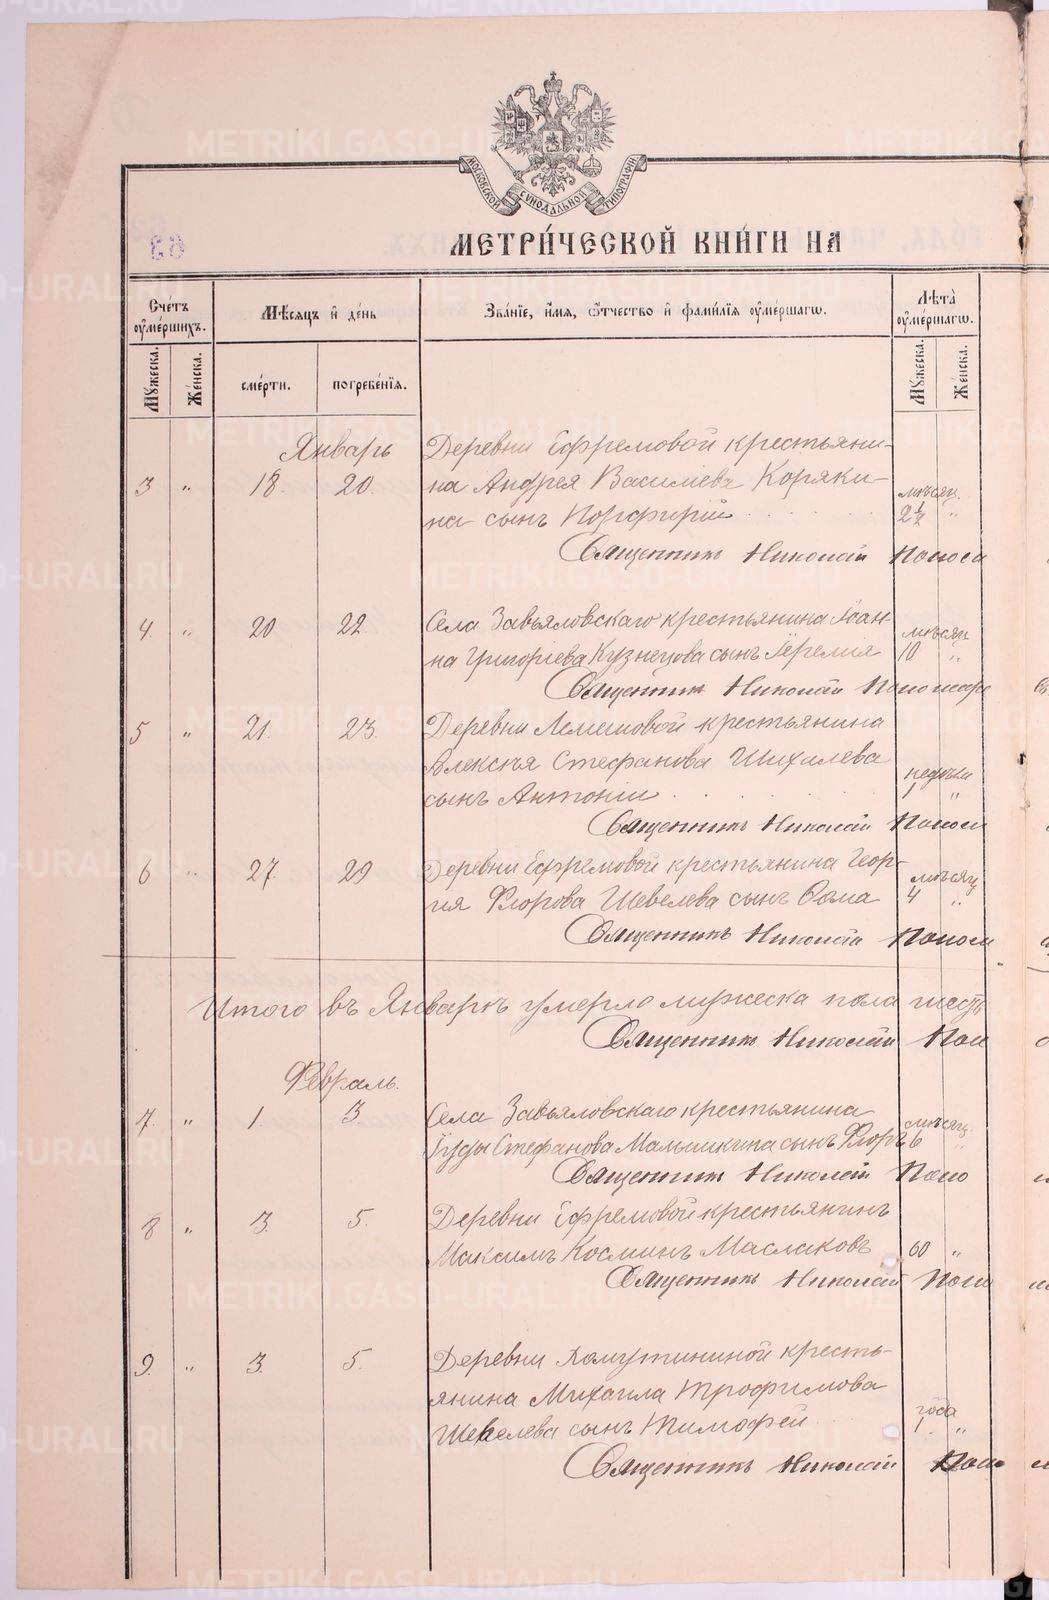 МОСКОВСКОЙ СѴНОДАЛЬНОЙ ТИПОГРАФІИ
МЕТРИ́ЧЕСКОЙ КНИ́ГИ НА
63
Сче́тъ ѹ҆ме́ршихъ.
Мѣ́сяцъ и҆ де́нь
Зва́нїе, и҆́мѧ, ѻ҆́тчество и҆ фами́лїѧ ѹ҆ме́ршагѡ.
Лѣта̀ ѹ҆ме́ршагѡ.
Мꙋ́жеска.
Же́нска.
сме́рти.
погребе́нїѧ.
Мꙋ́жеска.
Же́нска.
Январь
Деревни Ефремовой крестьяни-
3 " 18. 20. на Андрея Василiева Коряки-
на сынъ Порфирій мѣсяц. 2½ "
Священникъ Николай
4. " 20 22 Села Завьяловскаго крестьянина Іоан-
на Григорiева Кузнецова сынъ Іеремія мѣсяц 10 "
Священникъ Николай
5 " 21. 23. Деревни Лемешовой крестьянина
Алексѣя Стефанова Шихалева
сынъ Антоній недѣли 1 "
Священникъ Николай
6 " 27 29 Деревни Ефремовой крестьянина Геор-
гія Флорова Шевелева сынъ Ѳома мѣсяц 4 "
Священникъ Николай
Итого въ Январѣ умерло мужеска пола шесть
Священникъ Николай
Февраль.
7. " 1. 3. Села Завьяловскаго крестьянина
Іуды Стефанова Малышкина сынъ Флоръ мѣсяц. 6 "
Священникъ Николай
8 " 3. 5. Деревни Ефремовой крестьянинъ
Максимъ Косминъ Маслаковъ 60 "
Священникъ Николай
9. " 3. 5. Деревни Хомутининой кресть-
янина Михаила Трофимова
Шевелева сынъ Тимофей года 1. "
Священникъ Николай
METRIKI.GASO-URAL.RU